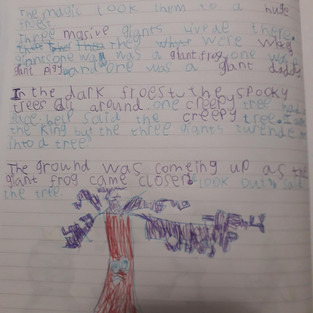 The magic took them to a huge
froest
Three masive giants were there
they were
giants one was a giant frog one was
giant pig and one was a giant daddy
In the dark froest the spooky
trees all around one creepy tree had
face help said the creepy tree. I
the king but the three giants turend me
into a tree.
The ground was comeing up as the
giant frog came closer look out said
the tree.